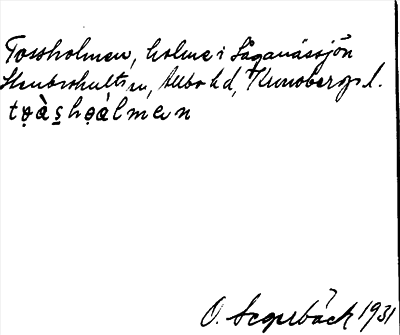 Tossholmen, holme i Såganässjön
Stenbrohults sn, Allbo hd, Kronobergs l.
tọàs̱họàlmen
O. Segerbäck 1931